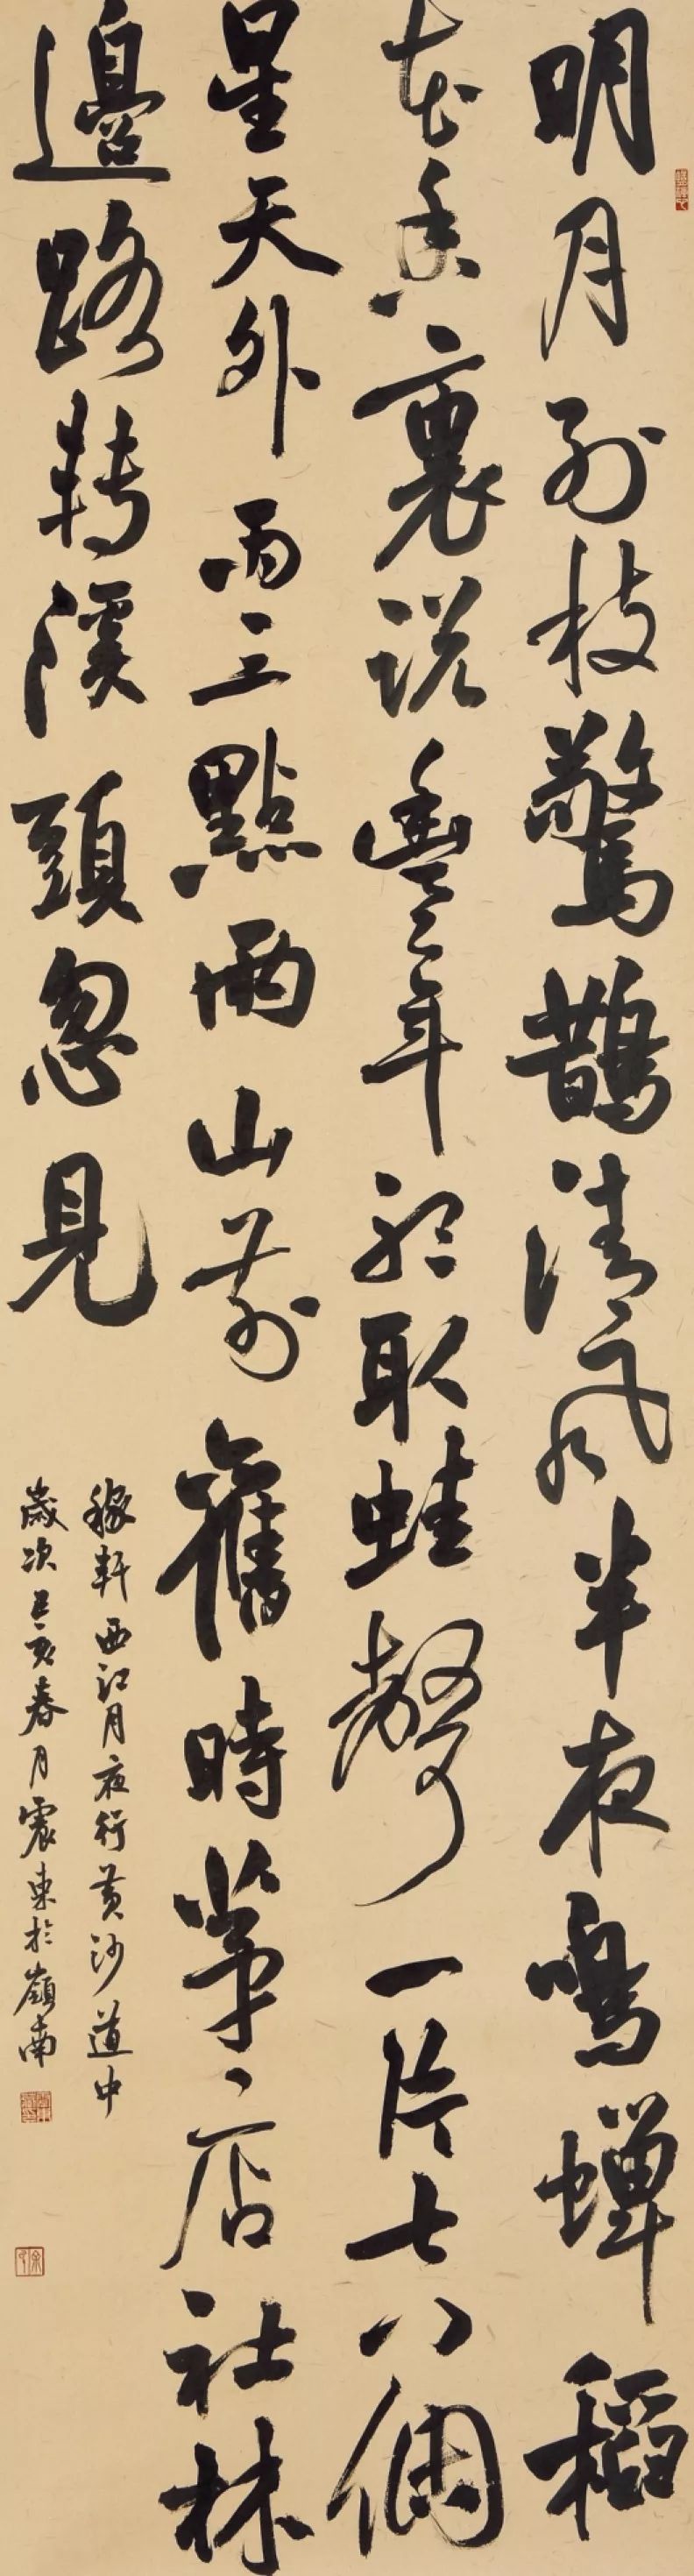 明月别枝驚鵲清風半夜鳴蟬稻
花香裏説豐年聽取蛙聲一片七八個
星天外兩三點雨山前舊時茅店社林
邊路轉溪頭忽見
稼軒西江月夜行黄沙道中
歲次己亥春月震東於嶺南